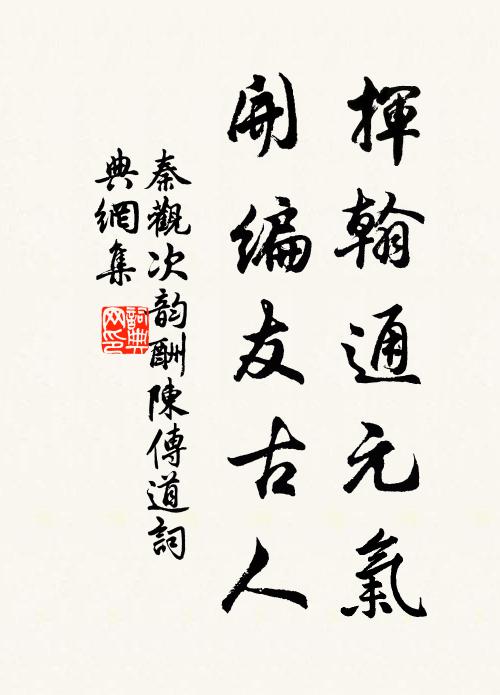 揮翰通元氣
開編友古人
秦觀次韵酬陳傳道詞
典網集
詞典
网印